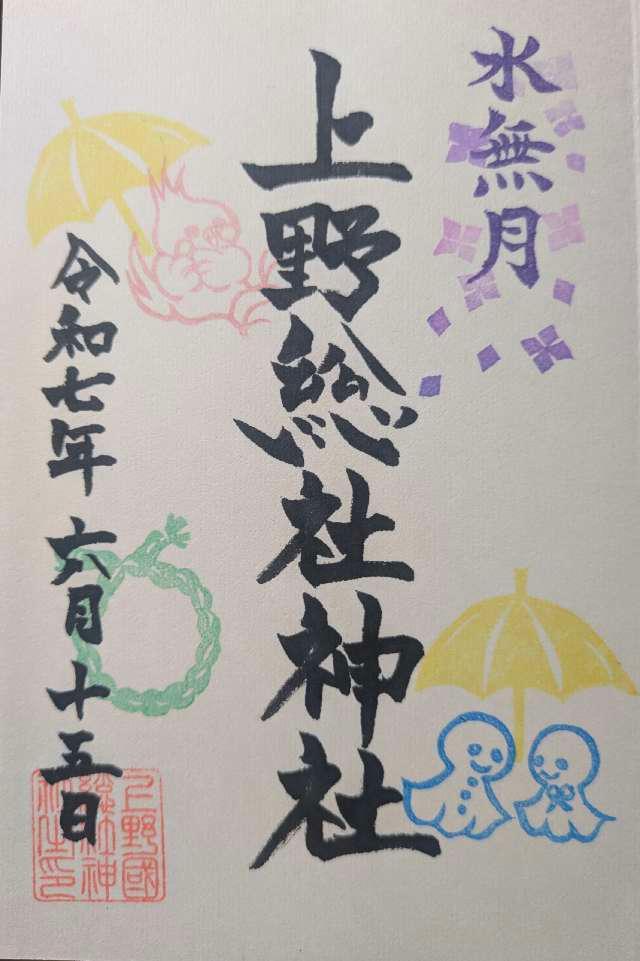 水無月
上野総社神社
令和七年 六月 十五日
上野國
総社神
社之印